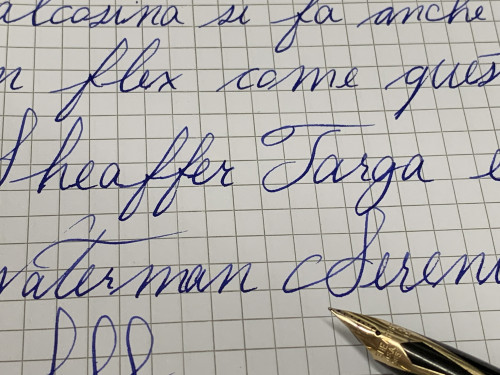 alcosina si fa anche
flex come ques
Sheaffer Targa e
Waterman Seren